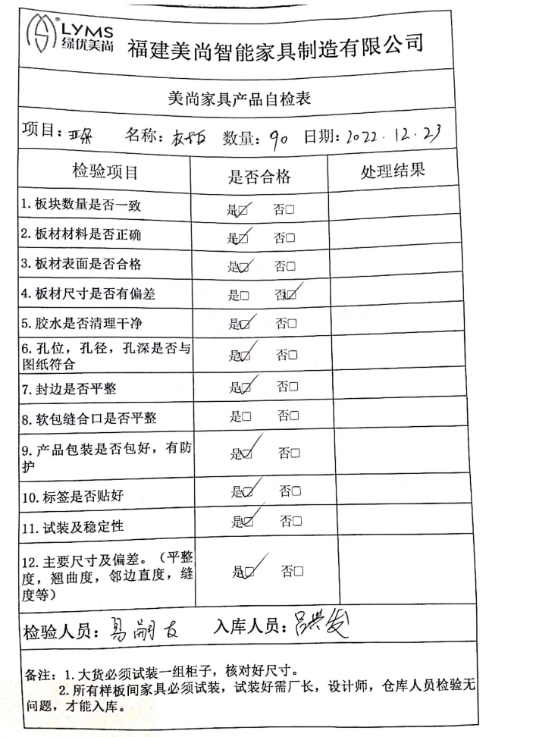 LYMS
绿优美尚
福建美尚智能家具制造有限公司
美尚家具产品自检表
项目: 名称: 数量:90 日期:2022.12.23
检验项目 是否合格 处理结果
1.板块数量是否一致 是☑ 否□
2.板材材料是否正确 是☑ 否□
3.板材表面是否合格 是☑ 否□
4.板材尺寸是否有偏差 是□ 否☑
5.胶水是否清理干净 是☑ 否□
6.孔位,孔径,孔深是否与
图纸符合 是☑ 否□
7.封边是否平整 是☑ 否□
8.软包缝合口是否平整 是□ 否□
9.产品包装是否包好,有防
护 是☑ 否□
10.标签是否贴好 是☑ 否□
11.试装及稳定性 是☑ 否□
12.主要尺寸及偏差。(平整
度,翘曲度,邻边直度,缝
度等) 是☑ 否□
检验人员: 入库人员:
备注:1.大货必须试装一组柜子,核对好尺寸。
2.所有样板间家具必须试装,试装好需厂长,设计师,仓库人员检验无
问题,才能入库。